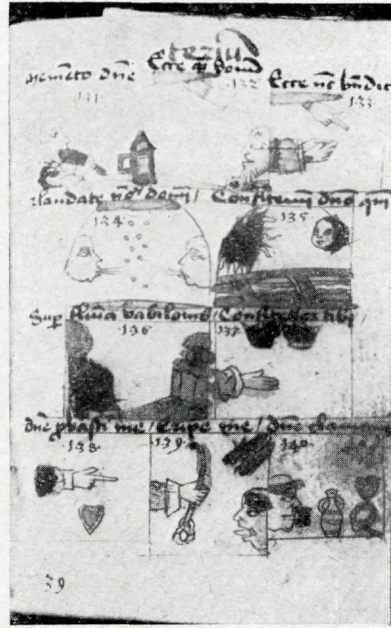 memeto dne Ecce q̄ bonū Ecce nc bndic
131 132 133
laudate nō domī / Confitemi dno qm
134 135
Sup flumīa babilonis / Confitebor tibi
136 137
Dne pbasti me / Eripe me / Dne clamaui
138 139 140
39